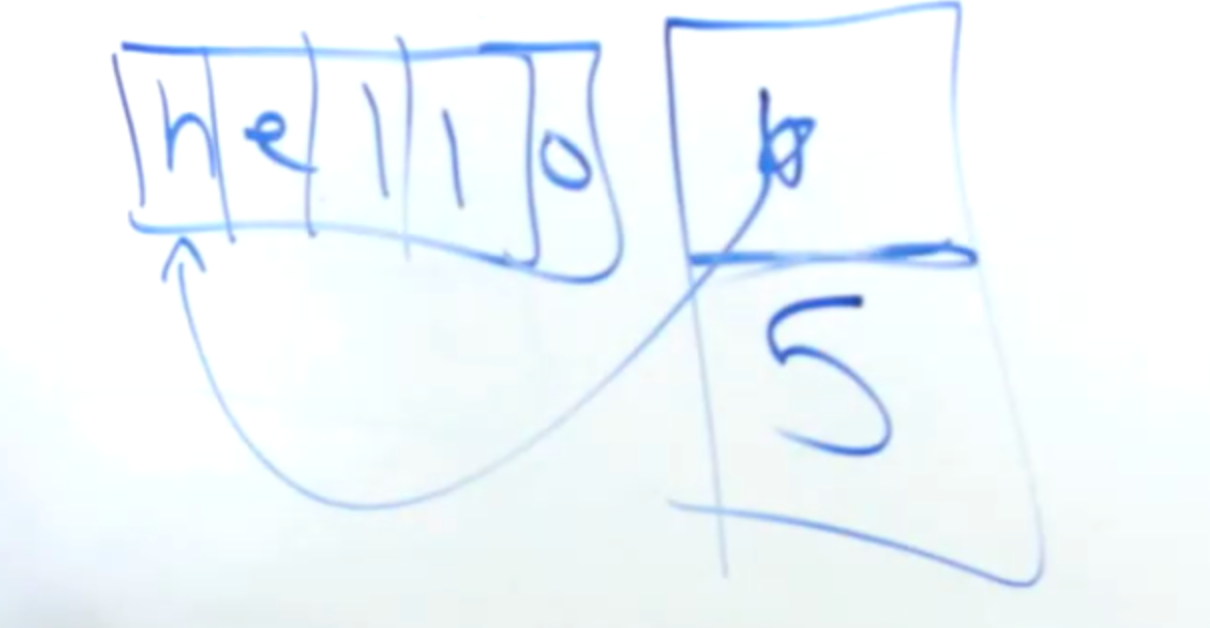 hello
5